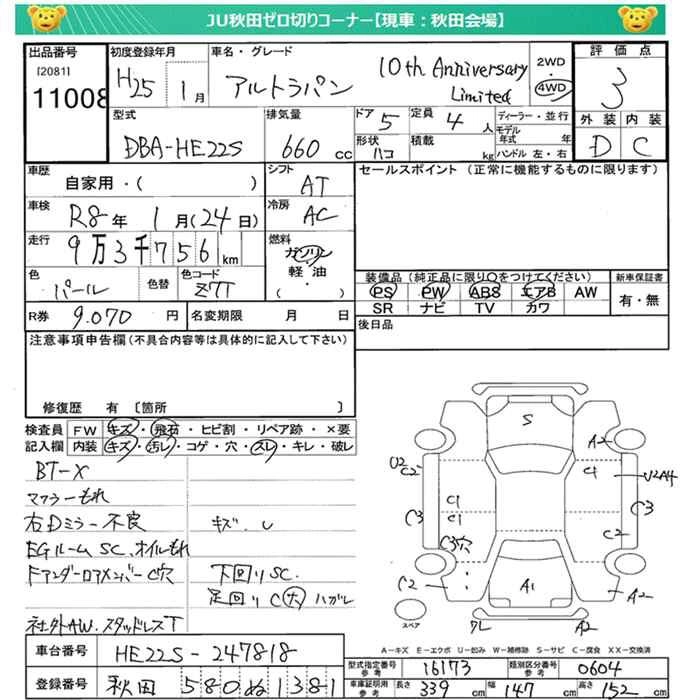 JU秋田ゼロ切りコーナー【現車：秋田会場】
出品番号
[2081]
11008
初度登録年月
H25 1月
車名・グレード
アルトラパン 10th Anniversary Limited
2WD
・
4WD
評価点
3
外装 内装
D C
型式
DBA-HE22S
排気量
660 cc
ドア 5
定員 4 人
形状 ハコ
積載 kg
ディーラー・並行
モデル年式 年
ハンドル 左・右
車歴
自家用・( )
シフト AT
車検
R8年 1月(24日)
冷房 AC
走行
9万3千756km
燃料
ガソリン
軽・油
( )
色 パール
色替
色コード Z7T
R券 9.070 円
名変期限 月 日
セールスポイント（正常に機能するものに限ります）
装備品（純正品に限り○をつけてください）
PS PW ABS エアB AW
SR ナビ TV カワ
新車保証書
有・無
後日品
注意事項申告欄(不具合内容等は具体的に記入して下さい)
修復歴 有 〔箇所 〕
検査員記入欄
FW キズ・飛石・ヒビ割・リペア跡・×要
内装 キズ・汚レ・コゲ・穴・スレ・キレ・破レ
BT-X
マフラーもれ
右Dミラー不良
キズ.U
EGルームSC、オイルもれ
FアンダーロアメンバーC穴
下回りSC.
足回りC大 ハガレ
社外AW.スタッドレスT
S
A2
U2
C2
C1
U2A4
C1
C3
C1
C3
C3穴
C2
C2
A1
A2
スペア
ワレ
A2
A－キズ E－エクボ U－凹み W－補修跡 S－サビ C－腐食 XX－交換済
車台番号
HE22S-247818
登録番号
秋田 580ぬ1381
型式指定番号 参考 16173
類別区分番号 参考 0604
車庫証明用 参考
長さ 339 cm
幅 147 cm
高さ 152 cm